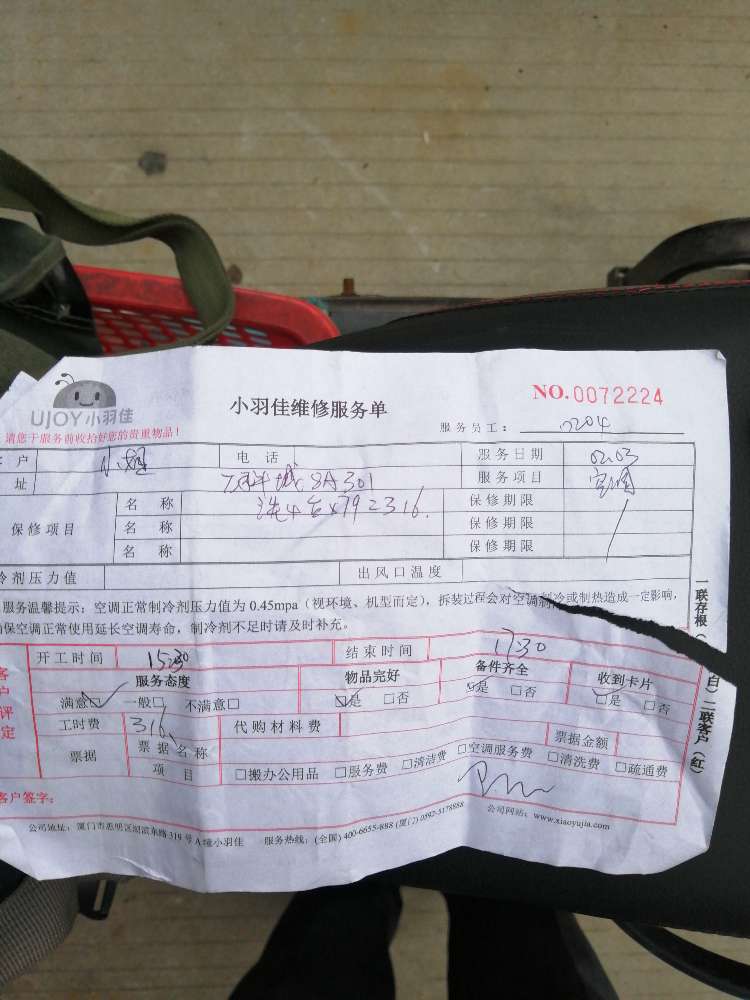 UJOY小羽佳
小羽佳维修服务单
NO.0072224
请您于服务前收拾好您的贵重物品!
服务员工: 0204
户 电话 服务日期 02.03
址 城8A301 服务项目 空调
保修项目 名称 洗4台x79=316. 保修期限
名称 保修期限
名称 保修期限
冷剂压力值 出风口温度
服务温馨提示:空调正常制冷剂压力值为0.45mpa(视环境、机型而定),拆装过程会对空调制冷或制热造成一定影响,
确保空调正常使用延长空调寿命,制冷剂不足时请及时补充。
客户评定
开工时间 15:30 结束时间 17:30
服务态度 物品完好 备件齐全 收到卡片
满意☑ 一般□ 不满意□ ☑是 □否 ☑是 □否 ☑是 □否
工时费 316 代购材料费
票据 票据名称 票据金额
项目 □搬办公用品 □服务费 □清洁费 □空调服务费 □清洗费 □疏通费
客户签字:
公司地址:厦门市思明区湖滨东路319号A幢小羽佳 服务热线:(全国)400-6655-888(厦门)0592-5178888 公司网站:www.xiaoyujia.com
一联存根(白)二联客户(红)